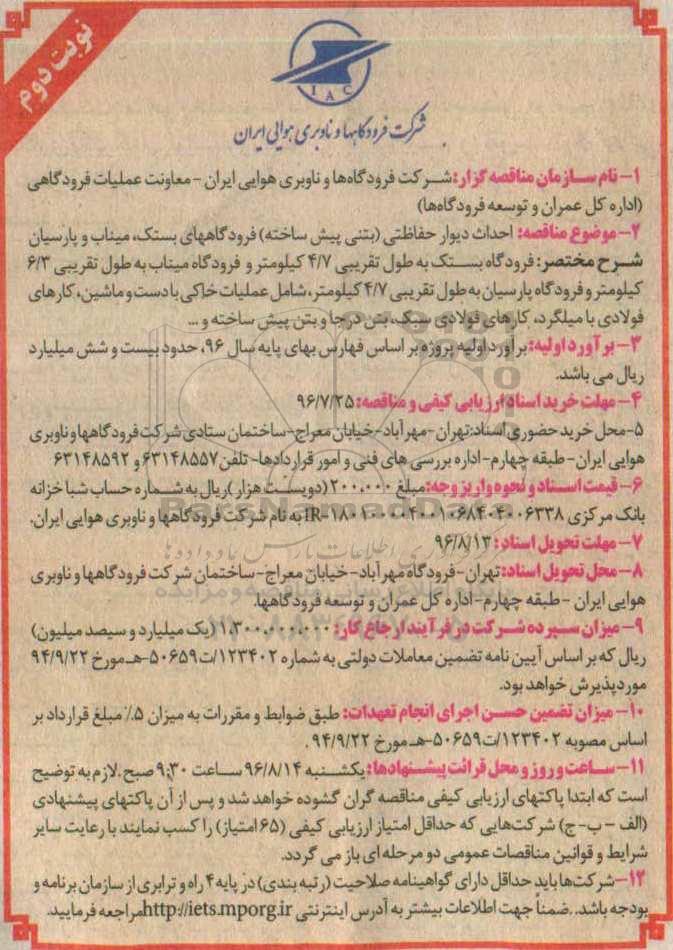 نوبت دوم
IAC
شرکت فرودگاهها و ناوبری هوایی ایران
۱- نام سـازمان مناقصه گزار: شـرکت فرودگاه‌ها و ناوبری هوایی ایران - معاونت عملیات فرودگاهی
(اداره کل عمران و توسعه فرودگاه‌ها)
۲- موضوع مناقصه: احداث دیوار حفاظتی (بتنی پیش ساخته) فرودگاههای بستک، میناب و پارسیان
شـرح مختصر: فرودگاه بسـتک به طول تقریبی ۴/۷ کیلومتر و فرودگاه میناب به طول تقریبی ۶/۳
کیلومتر و فرودگاه پارسیان به طول تقریبی ۴/۷ کیلومتر، شامل عملیات خاکی با دست و ماشین، کارهای
فولادی با میلگرد، کارهای فولادی سبک، بتن درجا و بتن پیش ساخته و ...
۳- بر آورد اولیه: برآورد اولیه پروژه بر اساس فهارس بهای پایه سال ۹۶، حدود بیست و شش میلیارد
ریال می باشد.
۴- مهلت خرید اسناد ارزیابی کیفی و مناقصه: ۹۶/۷/۲۵
۵- محل خرید حضوری اسناد: تهران - مهرآباد - خیابان معراج - ساختمان ستادی شرکت فرودگاهها و ناوبری
هوایی ایران - طبقه چهارم - اداره بررسی های فنی و امور قراردادها - تلفن ۶۳۱۴۸۵۵۷ و ۶۳۱۴۸۵۹۲
۶- قیمت اسـناد و نحوه واریز وجه: مبلغ ۲۰۰،۰۰۰ (دویسـت هزار) ریال به شـماره حساب شبا خزانه
بانک مرکزی IR-۱۸۰۱۰۰۰۰۴۰۰۱۰۶۸۴۰۴۰۰۶۳۳۸ به نام شرکت فرودگاهها و ناوبری هوایی ایران.
۷- مهلت تحویل اسناد: ۹۶/۸/۱۳
۸- محل تحویل اسناد: تهران - فرودگاه مهرآباد - خیابان معراج - ساختمان شرکت فرودگاهها و ناوبری
هوایی ایران - طبقه چهارم - اداره کل عمران و توسعه فرودگاهها.
۹- میزان سـپرده شـرکت در فرآیند ارجاع کار: ۱،۳۰۰،۰۰۰،۰۰۰ (یک میلیارد و سیصد میلیون)
ریال که بر اساس آیین نامه تضمین معاملات دولتی به شماره ۱۲۳۴۰۲/ت۵۰۶۵۹-هـ مورخ ۹۴/۹/۲۲
مورد پذیرش خواهد بود.
۱۰- میزان تضمین حسـن اجرای انجام تعهدات: طبق ضوابط و مقررات به میزان ۵٪ مبلغ قرارداد بر
اساس مصوبه ۱۲۳۴۰۲/ت۵۰۶۵۹-هـ مورخ ۹۴/۹/۲۲.
۱۱- سـاعت و روز و محل قرائت پیشـنهادها: یکشـنبه ۹۶/۸/۱۴ سـاعت ۹:۳۰ صبح. لازم به توضیح
است که ابتدا پاکتهای ارزیابی کیفی مناقصه گران گشوده خواهد شد و پس از آن پاکتهای پیشنهادی
(الف - ب - ج) شرکت‌هایی که حداقل امتیاز ارزیابی کیفی (۶۵ امتیاز) را کسب نمایند با رعایت سایر
شرایط و قوانین مناقصات عمومی دو مرحله ای باز می گردد.
۱۲- شرکت‌ها باید حداقل دارای گواهینامه صلاحیت (رتبه بندی) در پایه ۴ راه و ترابری از سازمان برنامه و
بودجه باشد. .ضمناً جهت اطلاعات بیشتر به آدرس اینترنتی http://iets.mporg.ir مراجعه فرمایید.
ParsNamadData